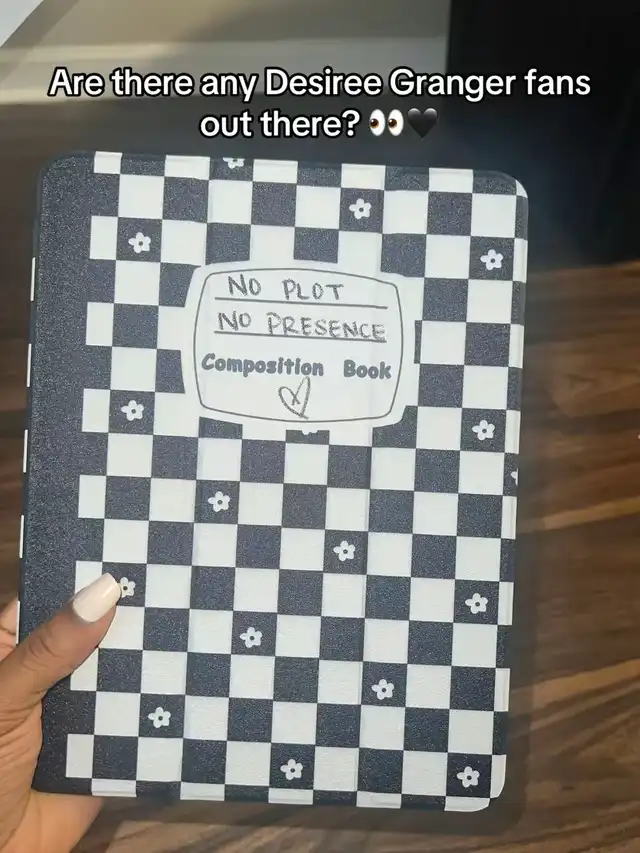 Are there any Desiree Granger fans
out there? 👀🖤
NO PLOT
NO PRESENCE
Composition Book